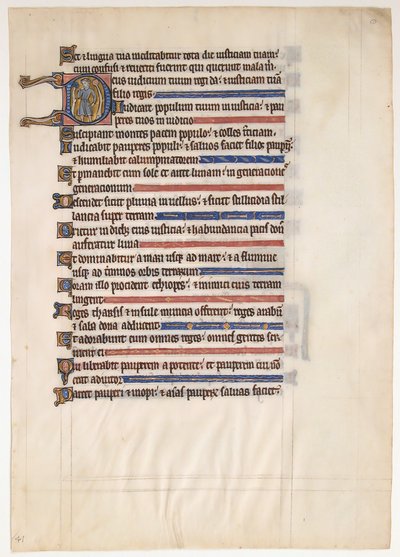 Set & lingua tua meditabitur tota die iusticiam tuam:
cum confusi & reueriti fuerint qui querunt mala m.
Deus iudicium tuum regi da: & iusticiam tuā
filio regis.
Iudicare populum tuum in iusticia: & pau
peres tuos in iudicio
Suscipiant montes pacem populo: & colles
Iudicabit pauperes populi: & saluos faciet filios
& humiliabit calumpniatorem
Et permanebit cum sole et ante lunam: in generatione
generationum
Descendet sicut pluuia in uellus: & sicut stillicidia stil
lancia super terram
Orietur in dieb; eius iusticia: & habundancia pacis
auferatur luna
Et dominabitur a mari usq; ad mare: & a flumine
usq; ad orbis terrarum
Coram illo procident ethiopes: & inimici eius terram
lingent
Reges tharsis & insule munera offerent: reges arabū
& saba dona adducent
Et adorabunt eum omnes reges: omnes gentes ser
uient ei
Qui liberabit pauperem a potente: et pauperem cui nō
erat adiutor
Parcet pauperi & inopi: & aīas pauperū saluas faciet:
41